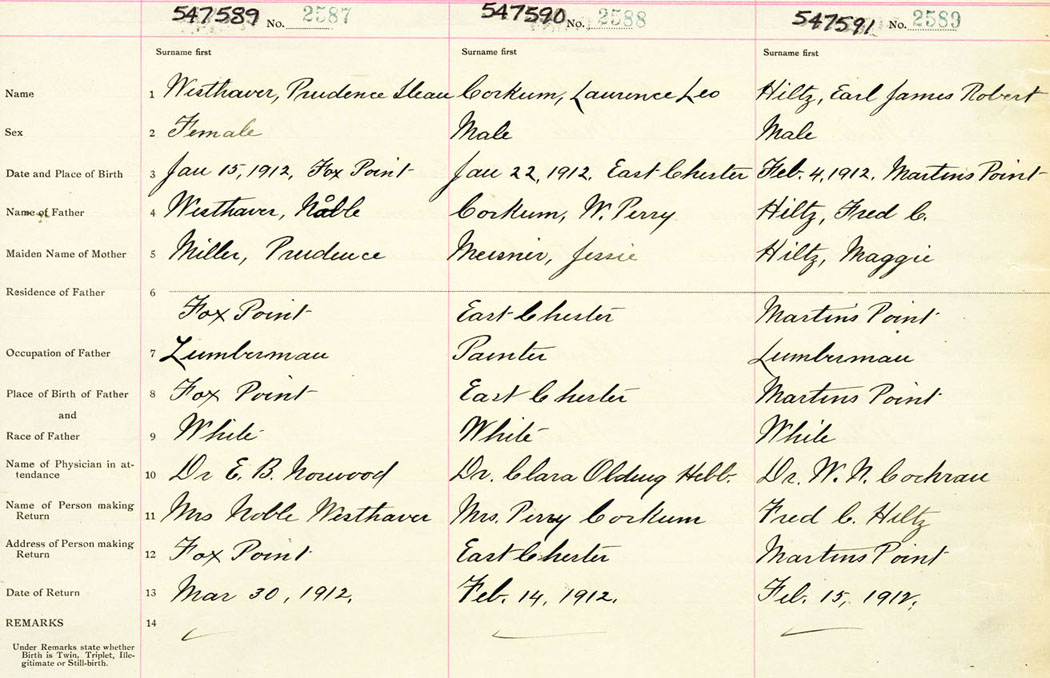 547589 No. 2587 547590 No. 2588 547591 No. 2589
Surname first Surname first Surname first
Name 1 Westhaver, Prudence Corkum, Laurence Leo Hiltz, Earl James Robert
Sex 2 Female Male Male
Date and Place of Birth 3 Jan 15, 1912, Fox Point Jan 22, 1912. East Chester Feb. 4, 1912. Martins Point
Name of Father 4 Westhaver, Noble Corkum, W. Perry Hiltz, Fred C.
Maiden Name of Mother 5 Miller, Prudence Meisner, Jessie Hiltz, Maggie
Residence of Father 6
Fox Point East Chester Martins Point
Occupation of Father 7 Lumberman Painter Lumberman
Place of Birth of Father 8 Fox Point East Chester Martins Point
and
Race of Father 9 White White White
Name of Physician in at-
tendance 10 Dr E. B. Norwood Dr. Clara Olding Hebb. Dr. W. N. Cochran
Name of Person making
Return 11 Mrs Noble Westhaver Mrs. Perry Corkum Fred C. Hiltz
Address of Person making
Return 12 Fox Point East Chester Martins Point
Date of Return 13 Mar 30, 1912. Feb. 14, 1912. Feb. 15, 1912.
REMARKS 14
Under Remarks state whether
Birth is Twin, Triplet, Ille-
gitimate or Still-birth.